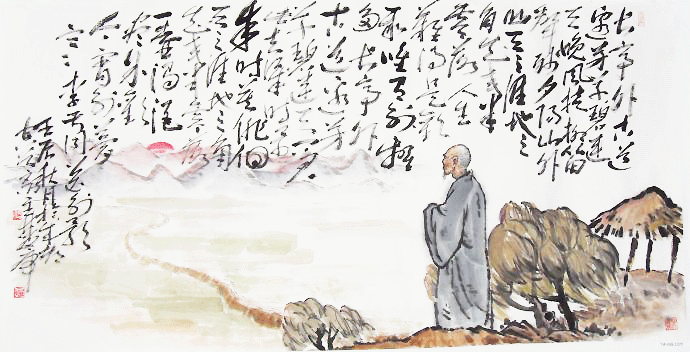 长亭外古道
边芳草碧连
天晚风拂柳笛
声残夕阳山外
山天之涯地之
角知交半
零落人生
难得是欢
聚唯有别离
多长亭外
古道边芳
草碧连天问君
此去几时
来时莫徘徊
天之涯地之角
知交半零落
一壶浊酒
尽余欢
今宵别梦
寒李叔同送别歌
壬辰秋月